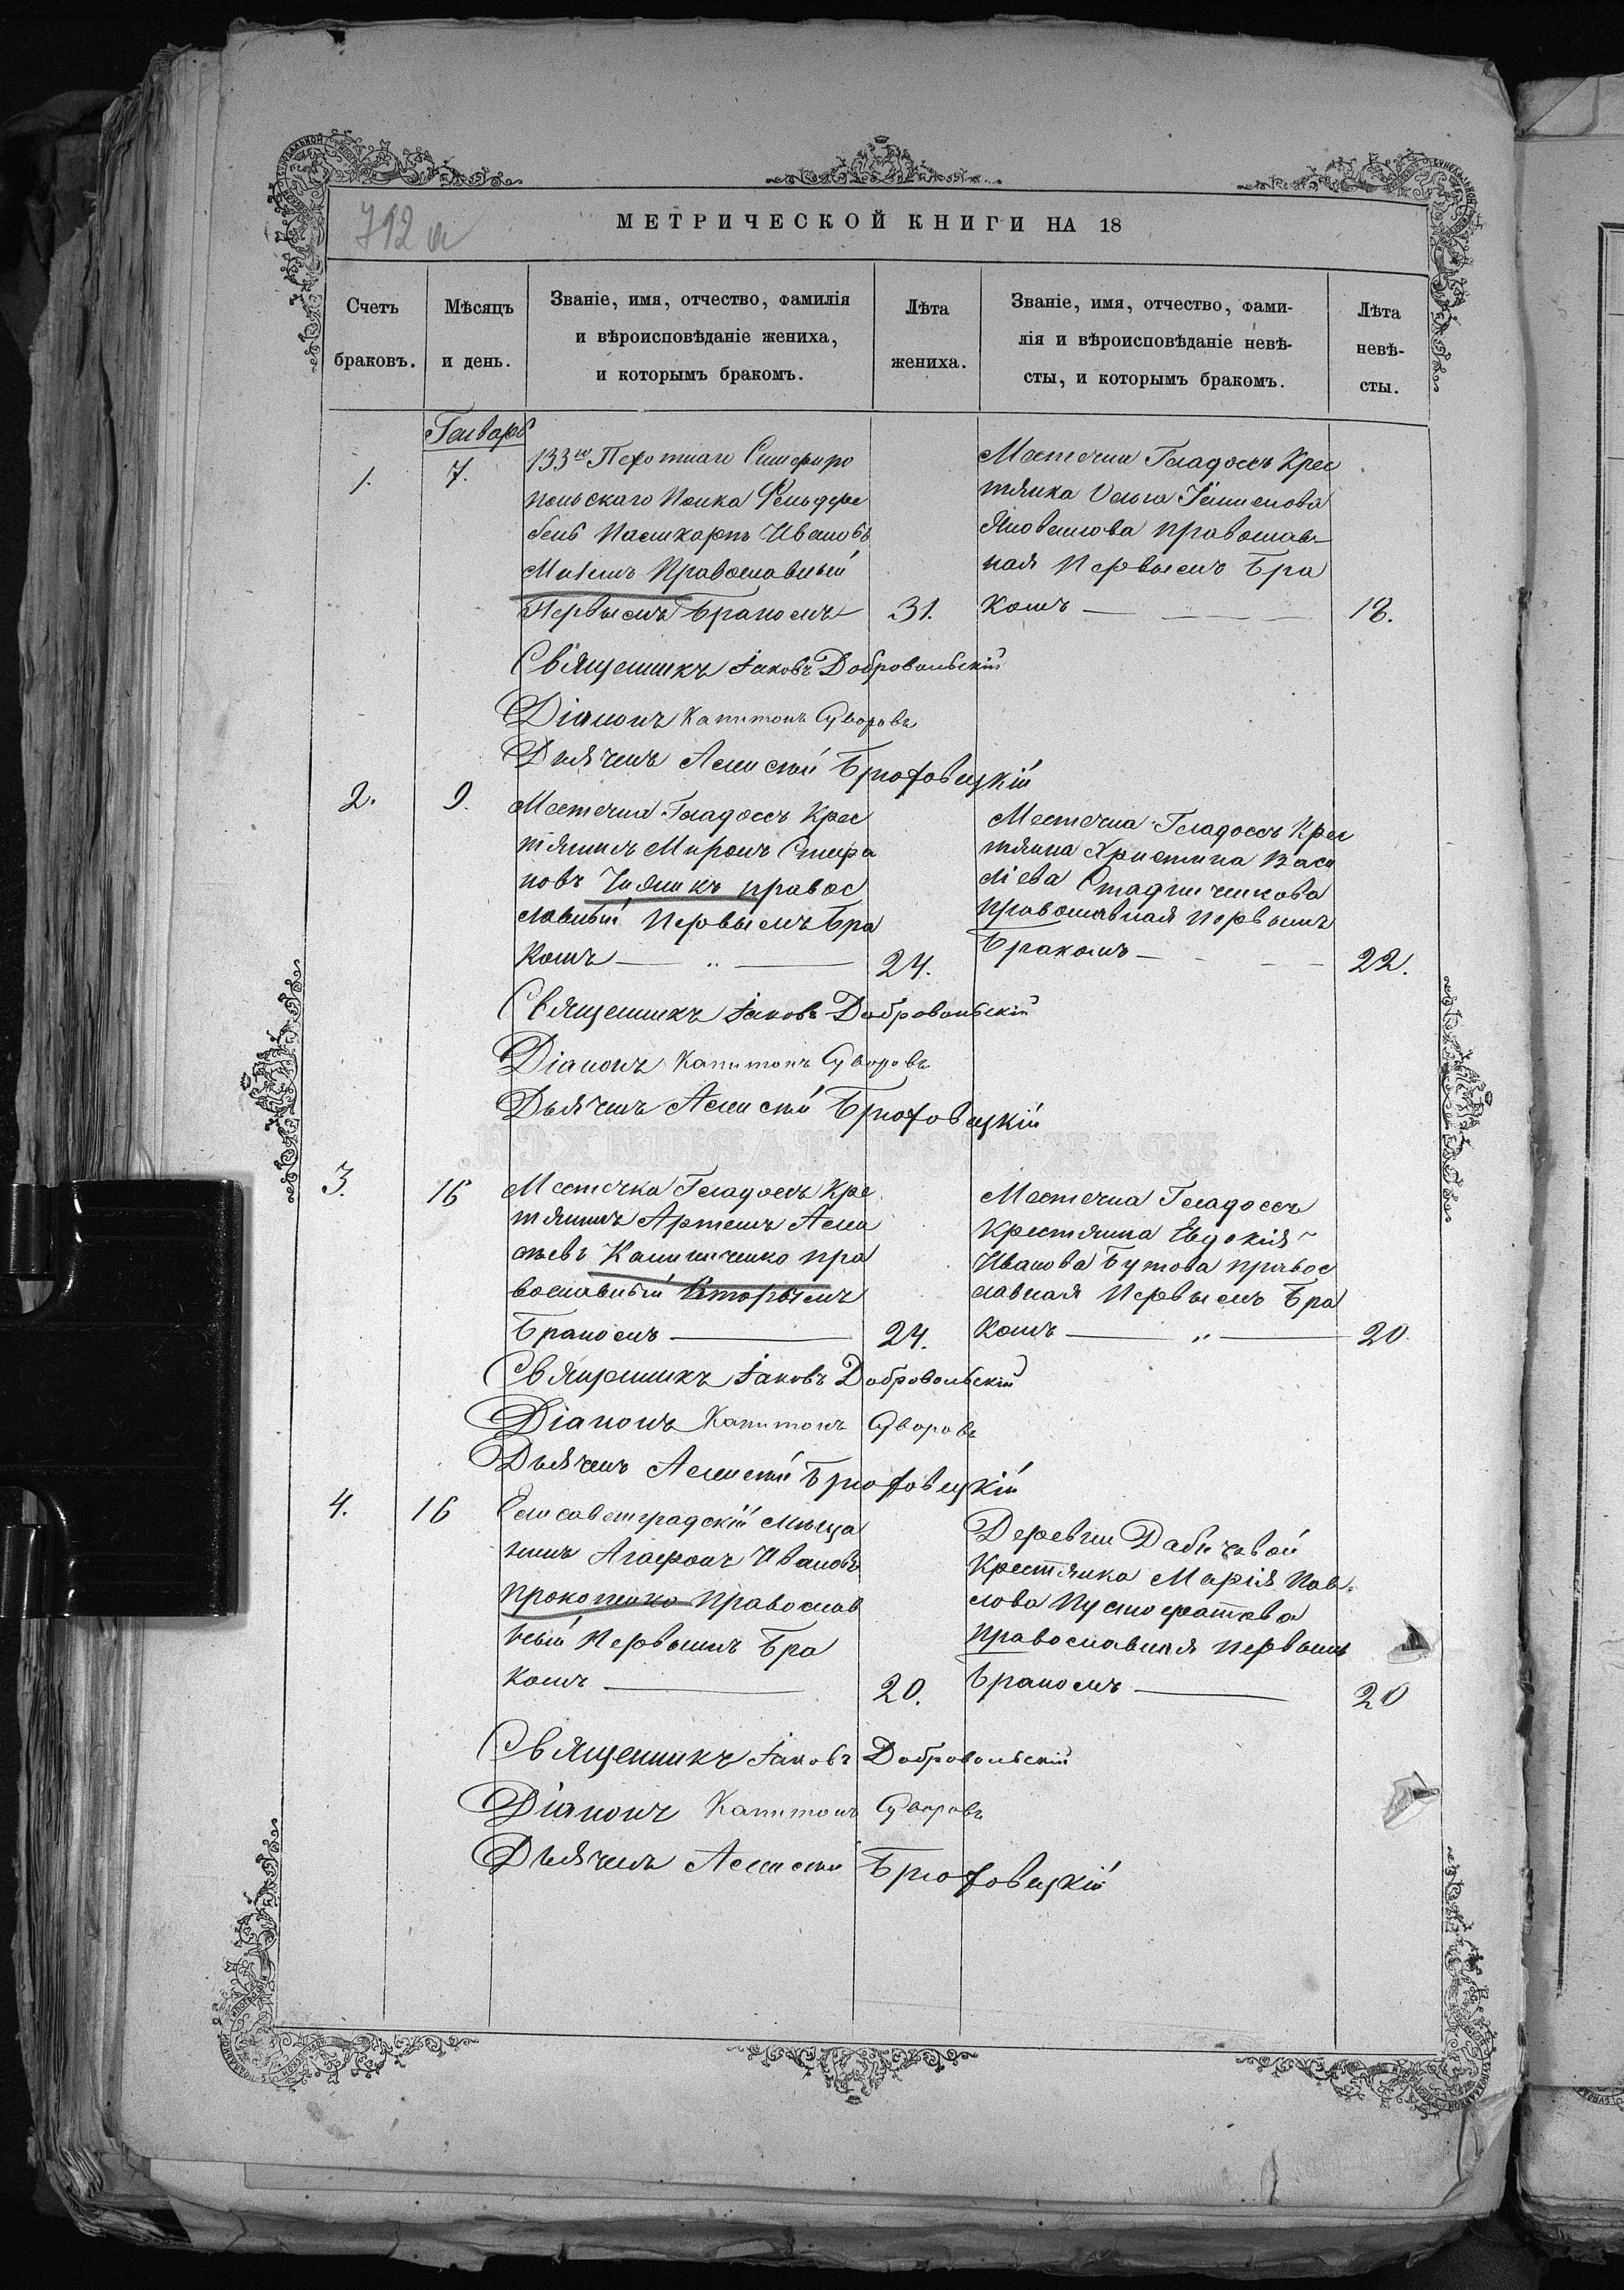 712 а
МЕТРИЧЕСКОЙ КНИГИ НА 18
Счетъ браковъ.
Мѣсяцъ и день.
Званіе, имя, отчество, фамилія
и вѣроисповѣданіе жениха,
и которымъ бракомъ.
Лѣта жениха.
Званіе, имя, отчество, фами-
лія и вѣроисповѣданіе невѣ-
сты, и которымъ бракомъ.
Лѣта невѣ-
сты.
Генварь
1.
7.
133го Пехотнаго Симферо
польскаго Полка Фельдфе
бель Ивановъ
Православный
Первымъ Бракомъ
31.
Местечка Гладосъ Крес
тянка
православ-
ная Первымъ Бра
комъ
18.
Священникъ Іаковъ Добровольскій
Діаконъ Капитонъ Суворовъ
Дьячекъ Алексѣй Брюховецкій
2.
9.
Местечка Гладосъ Крес
тянинъ Миронъ Стефа
новъ правос
лавный Первымъ Бра
комъ
24.
Местечка Гладосъ Крес
тянка Христина Васи
лiева
Православная Первымъ
Бракомъ
22.
Священникъ Іаковъ Добровольскій
Діаконъ Капитонъ Суворовъ
Дьячекъ Алексѣй Брюховецкій
3.
16
Местечка Гладосъ Кре
тянинъ Артемъ Алек
сѣевъ Калиниченко пра
вославный Вторымъ
Бракомъ
24.
Местечка Гладосъ
Крестянка Евдокія
Иванова Бутова правос
лавная Первымъ Бра
комъ
20
Священникъ Іаковъ Добровольскій
Діаконъ Капитонъ Суворовъ
Дьячекъ Алексѣй Брюховецкій
4.
16
Елисаветградскій мѣща
нинъ Агафонъ Ивановъ
Прокопенко Православ
ный Первымъ Бра
комъ
20.
Деревни
Крестянка Марія Пав-
лова
Православная Первымъ
Бракомъ
20
Священникъ Іаковъ Добровольскій
Діаконъ Капитонъ Суворовъ
Дьячекъ Алексѣй Брюховецкій